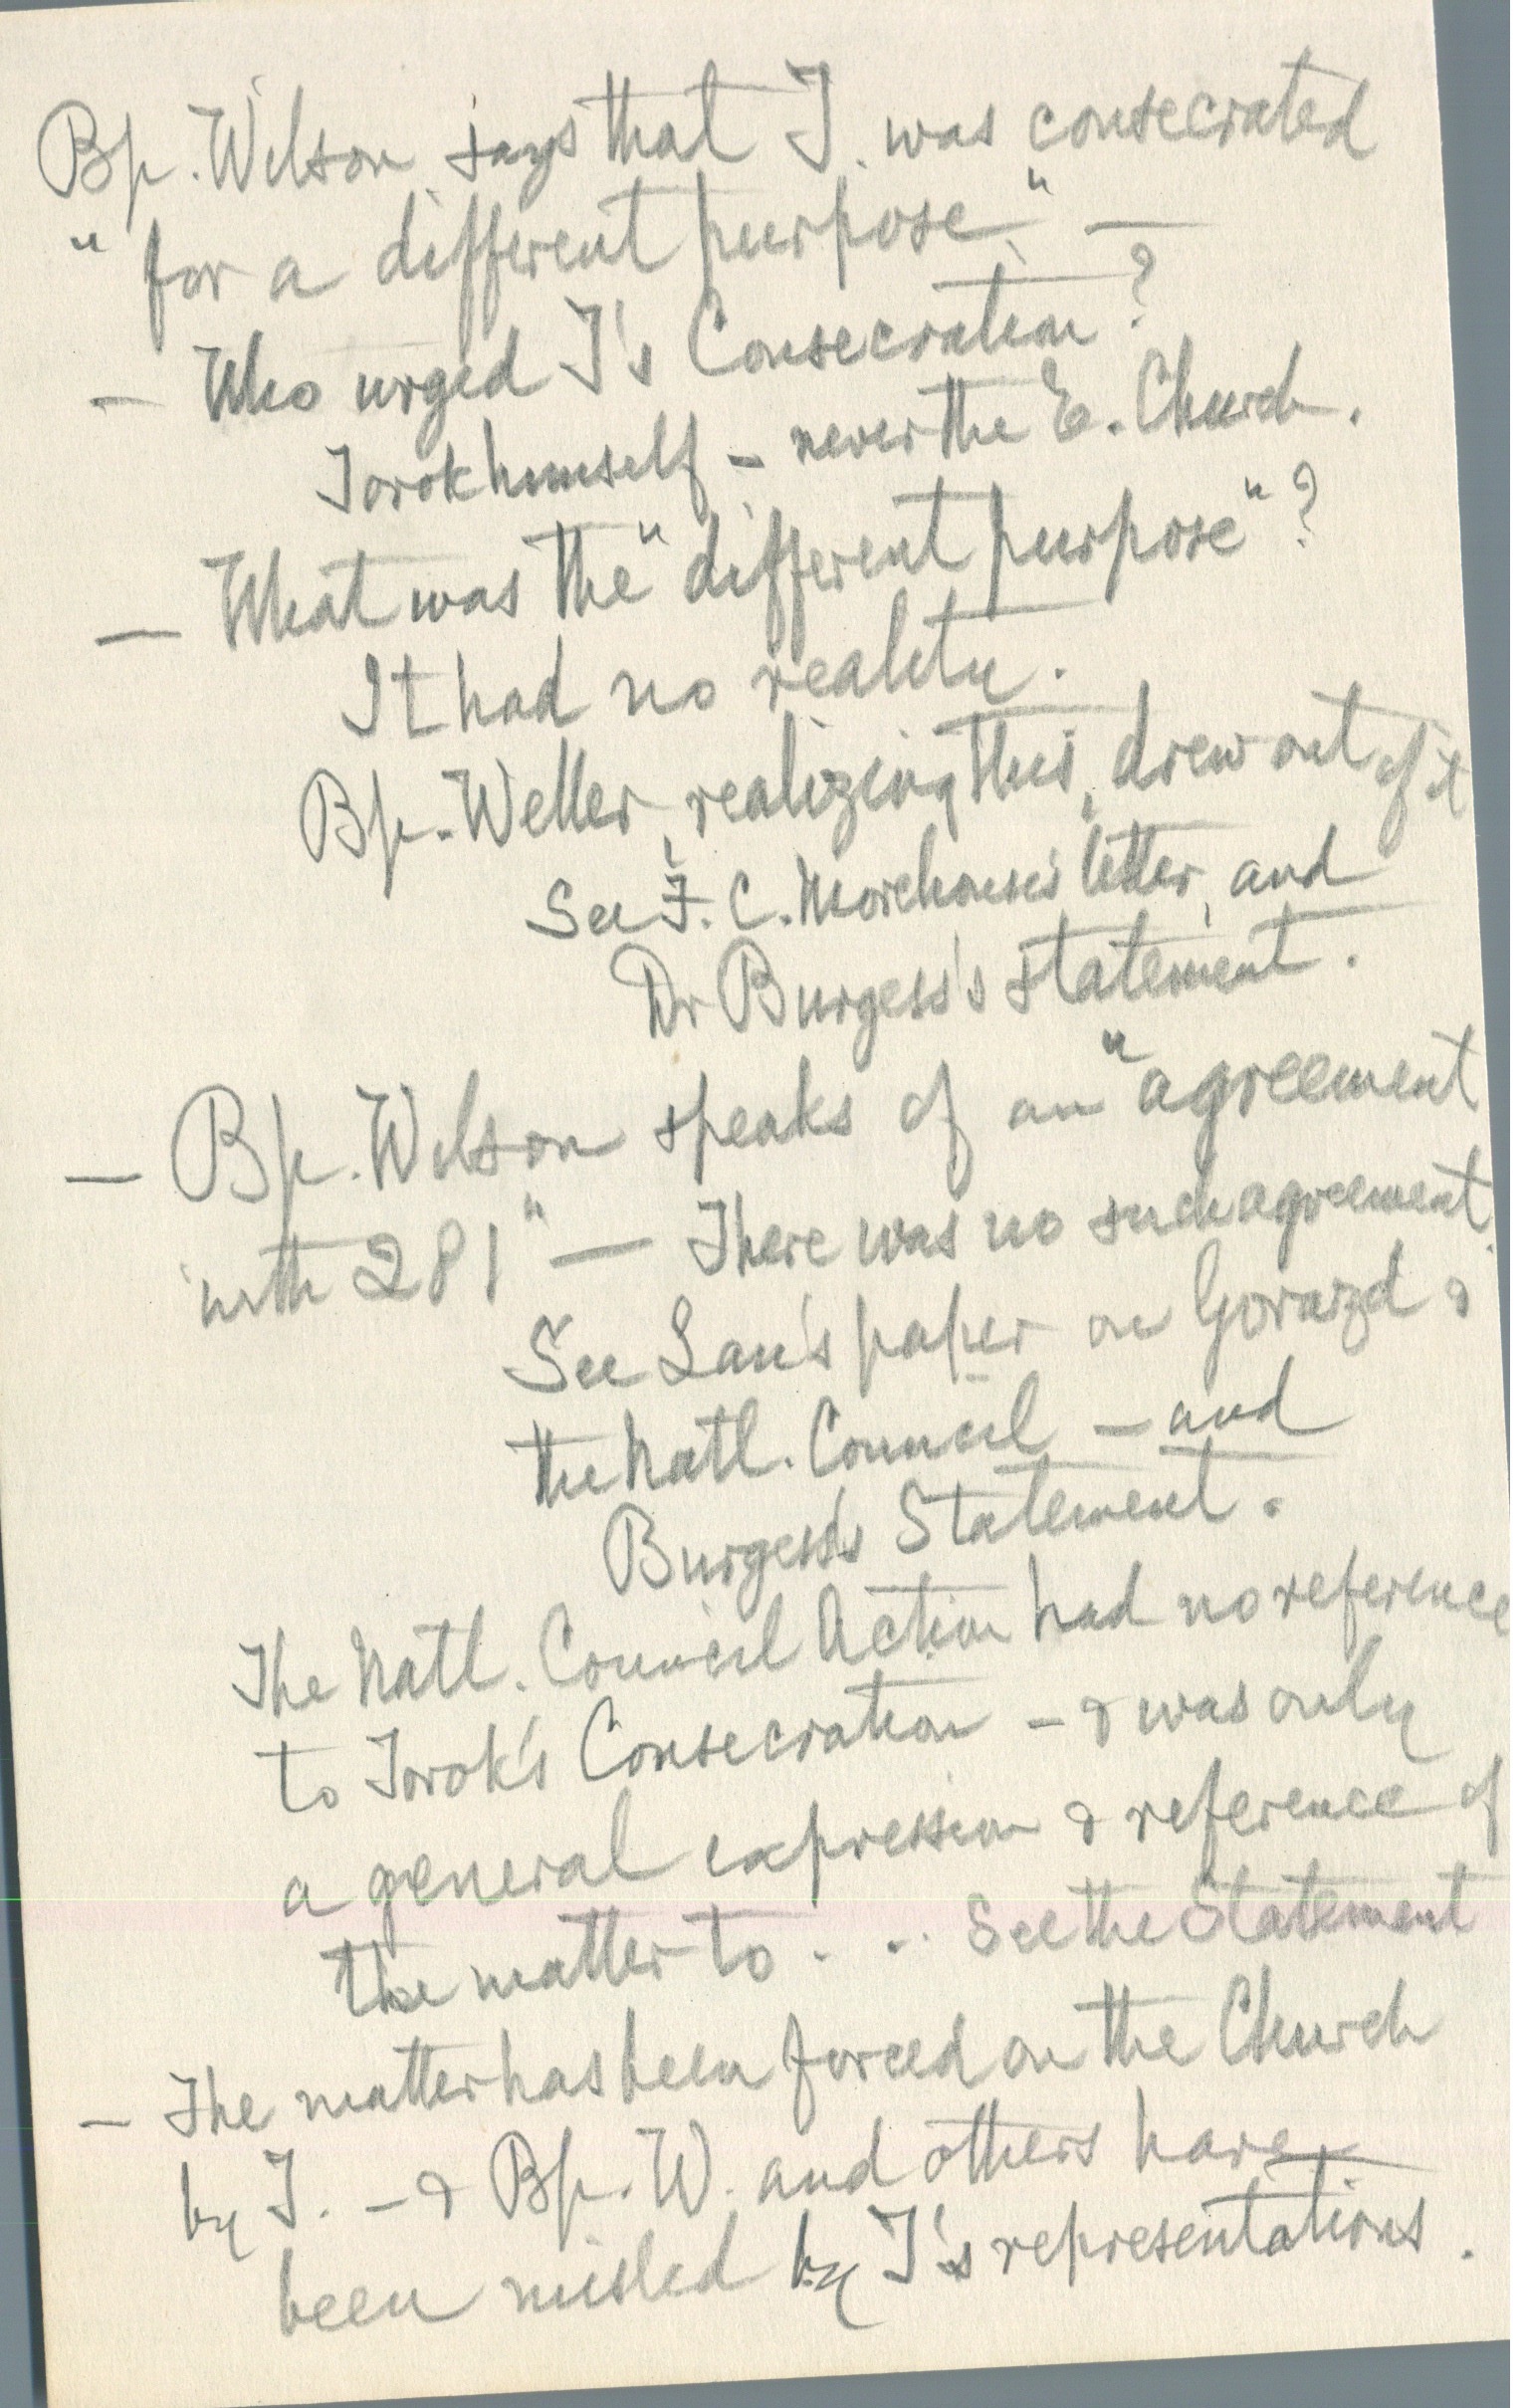 Bp. Wilson says that T. was consecrated
"for a different purpose" —
— Who urged T's Consecration?
Torok himself – never the E. Church.
— What was the "different purpose"?
It had no reality.
Bp. Weller, realizing this, drew out of it
See F. C. Morehouse's letter, and
Dr Burgess's statement.
— Bp. Wilson speaks of an "agreement
with 281" — There was no such agreement.
See Lau's paper on Gorazd &
the Natl. Council – and
Burgess's Statement.
The Natl. Council Action had no reference
to Torok's Consecration – & was only
a general expression & reference of
the matter to . . . See the Statement
— The matter has been forced on the Church
by T. – & Bp. W. and others have
been misled by T's representations.